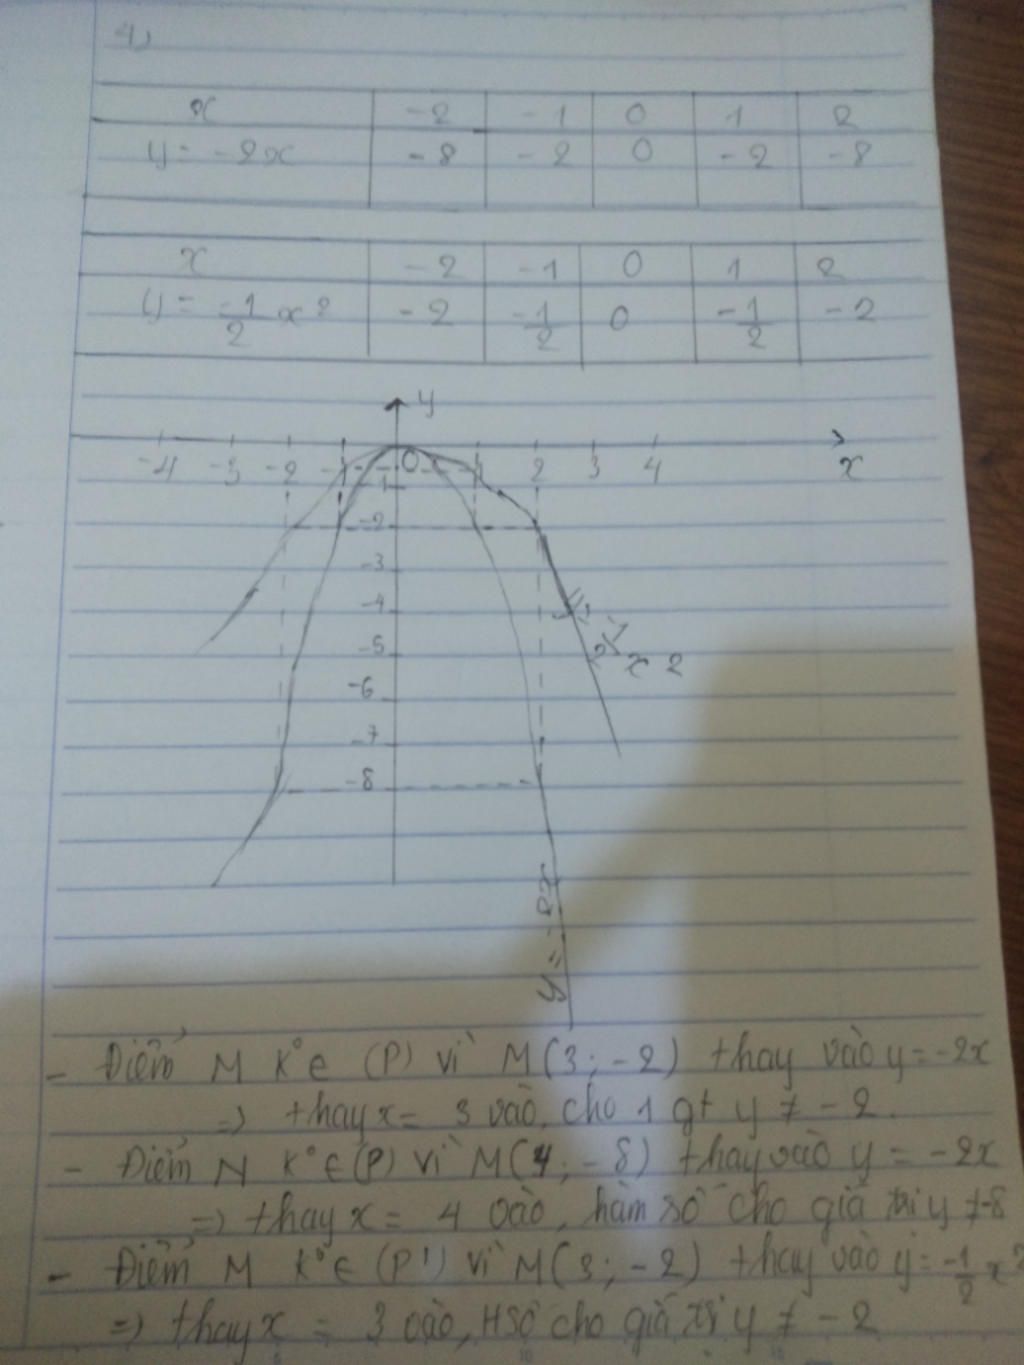 4)
x -2 -1 0 1 2
y = -2x -8 -2 0 -2 -8
x -2 -1 0 1 2
y = -1/2 x² -2 -1/2 0 -1/2 -2
y
-4 -3 -2 -1 0 1 2 3 4 x
-1
-2
-3
-4
-5
-6
-7
-8
y = -1/2 x²
y = -2x
- Điểm M K° ∈ (P) vì M(3; -2) thay vào y = -2x
=> thay x = 3 vào, cho 1 gt y ≠ -2.
- Điểm N K° ∈ (P) vì M(4; -8) thay vào y = -2x
=> thay x = 4 vào, hàm số cho giá trị y ≠ -8
- Điểm M K° ∈ (P') vì M(3; -2) thay vào y = -1/2 x²
=> thay x = 3 vào, Hsố cho giá trị y ≠ -2